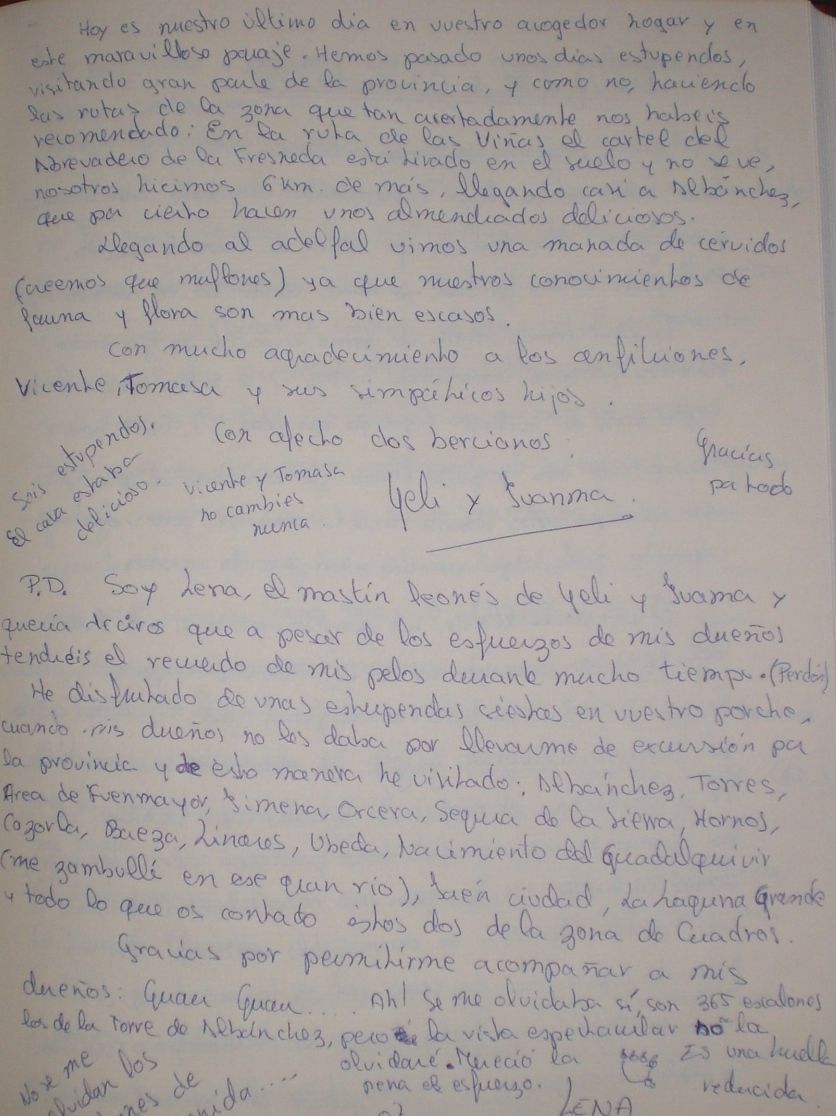 Hoy es nuestro último dia en vuestro acogedor hogar y en
este maravilloso paraje. Hemos pasado unos dias estupendos,
visitando gran parte de la provincia, y como no, haciendo
las rutas de la zona que tan acertadamente nos habeis
recomendado: En la ruta de las Viñas el cartel del
Abrevadero de la Fresneda está tirado en el suelo y no se ve,
nosotros hicimos 6 km. de más, llegando casi a Albánchez,
que por cierto hacen unos almendrados deliciosos.
Llegando al adelfal vimos una manada de cérvidos
(creemos que muflones) ya que nuestros conocimientos de
fauna y flora son mas bien escasos.
Con mucho agradecimiento a los anfitriones,
Vicente, Tomasa y sus simpáticos hijos.
Con afecto dos bercianos:
Yeli y Juanma.
Gracias
por todo
Sois estupendos.
El cava estaba
delicioso.
Vicente y Tomasa
no cambies
nunca
P.D. Soy Lena, el mastín leonés de Yeli y Juama y
quería deciros que a pesar de los esfuerzos de mis dueños
tendréis el recuerdo de mis pelos durante mucho tiempo. (Perdón)
He disfrutado de unas estupendas siestas en vuestro porche,
cuando mis dueños no les daba por llevarme de excursión por
la provincia y de esta manera he visitado: Albánchez, Torres,
Area de Fuenmayor, Jimena, Orcera, Segura de la Sierra, Hornos,
Cazorla, Baeza, Linares, Ubeda, Nacimiento del Guadalquivir
(me zambullí en ese gran río), Jaén ciudad, La Laguna Grande
y todo lo que os contado éstos dos de la zona de Cuadros.
Gracias por permitirme acompañar a mis
dueños: Guau Guau.... Ah! Se me olvidaba sí, son 365 escalones
los de la Torre de Albánchez, pero la vista espectacular no la
olvidaré. Mereció la
pena el esfuerzo.
Es una huella
reducida
LENA
No se me
olvidan los
de